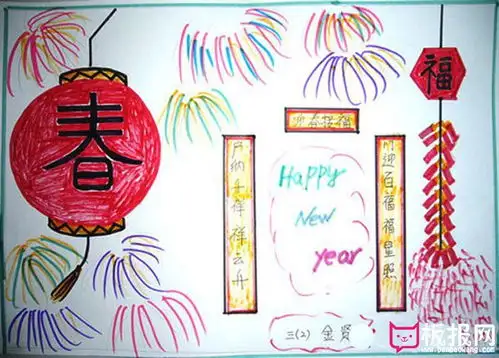 春
福
迎春接福
门迎百福福星照
户纳千祥祥云
Happy
New
year
三(2) 金贤
板报网
www.banbaowang.com